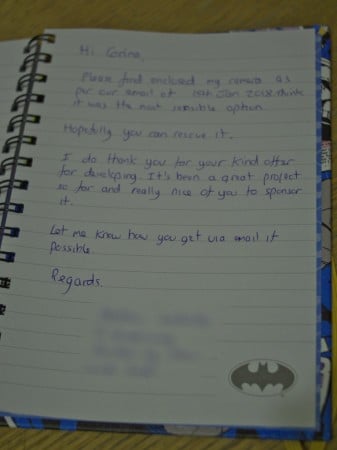 Hi Corina,
Please find enclosed my camera as
per our email of 1st Jan 2018. think
it was the most sensible option.
Hopefully you can rescue it.
I do thank you for your kind offer
for developing. It's been a great project
so far and really nice of you to sponsor
it.
Let me know how you get via email if
possible.
Regards.